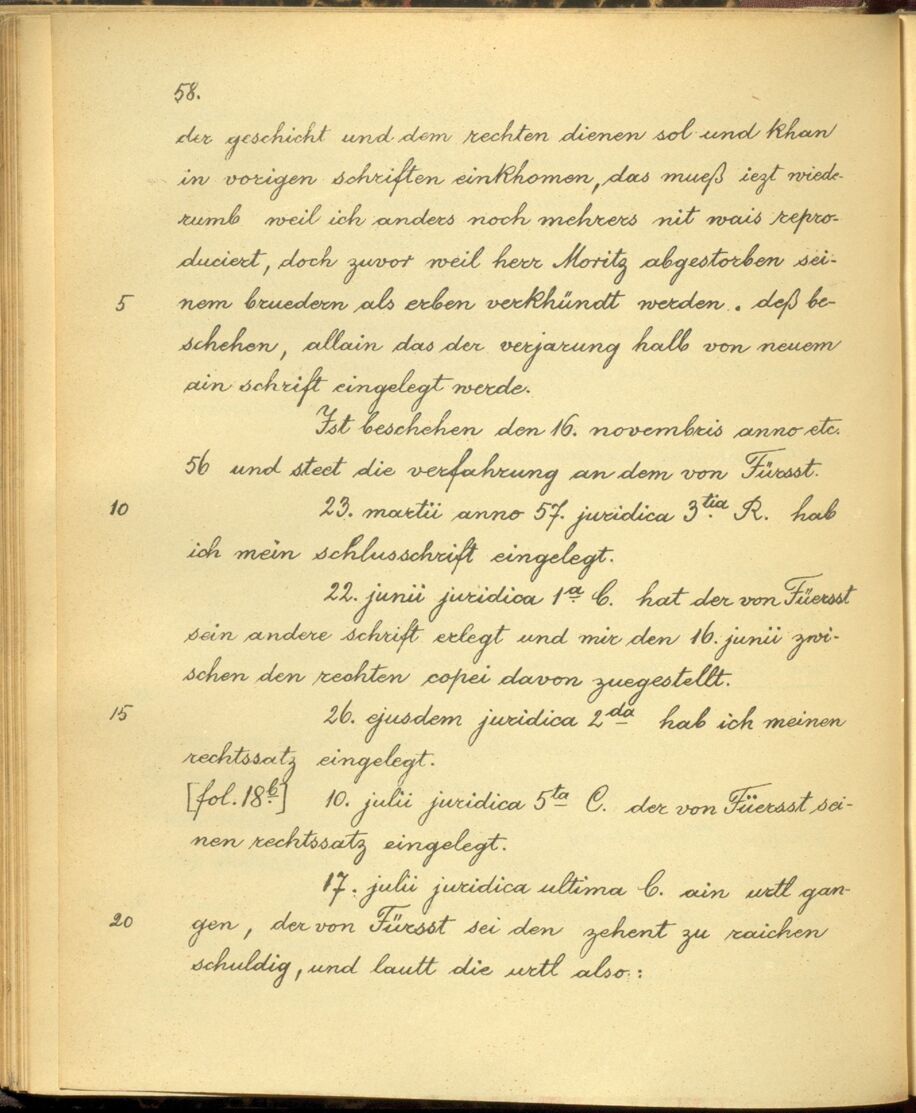 58.
der geschicht und dem rechten dienen sol und khan
in vorigen schriften einkhomen, das mueß iezt wiede-
rumb weil ich anders noch mehrers nit wais repro-
duciert, doch zuvor weil herr Moritz abgestorben sei-
5 nem bruedern als erben verkhündt werden. deß be-
schehen, allain das der verjarung halb von neuem
ain schrift eingelegt werde.
Ist beschehen den 16. novembris anno etc.
56 und steet die verfahrung an dem von Fürsst.
10 23. martii anno 57. juridica 3tia R. hab
ich mein schlusschrift eingelegt.
22. junii juridica 1a C. hat der von Füersst
sein andere schrift erlegt und mir den 16. junii zwi-
schen den rechten copei davon zuegestellt.
15 26. ejusdem juridica 2da hab ich meinen
rechtssatz eingelegt.
[fol. 18b] 10. julii juridica 5ta C. der von Füersst sei-
nen rechtssatz eingelegt.
17. julii juridica ultima C. ain urtl gan-
20 gen, der von Fürsst sei den zehent zu raichen
schuldig, und lautt die urtl also: